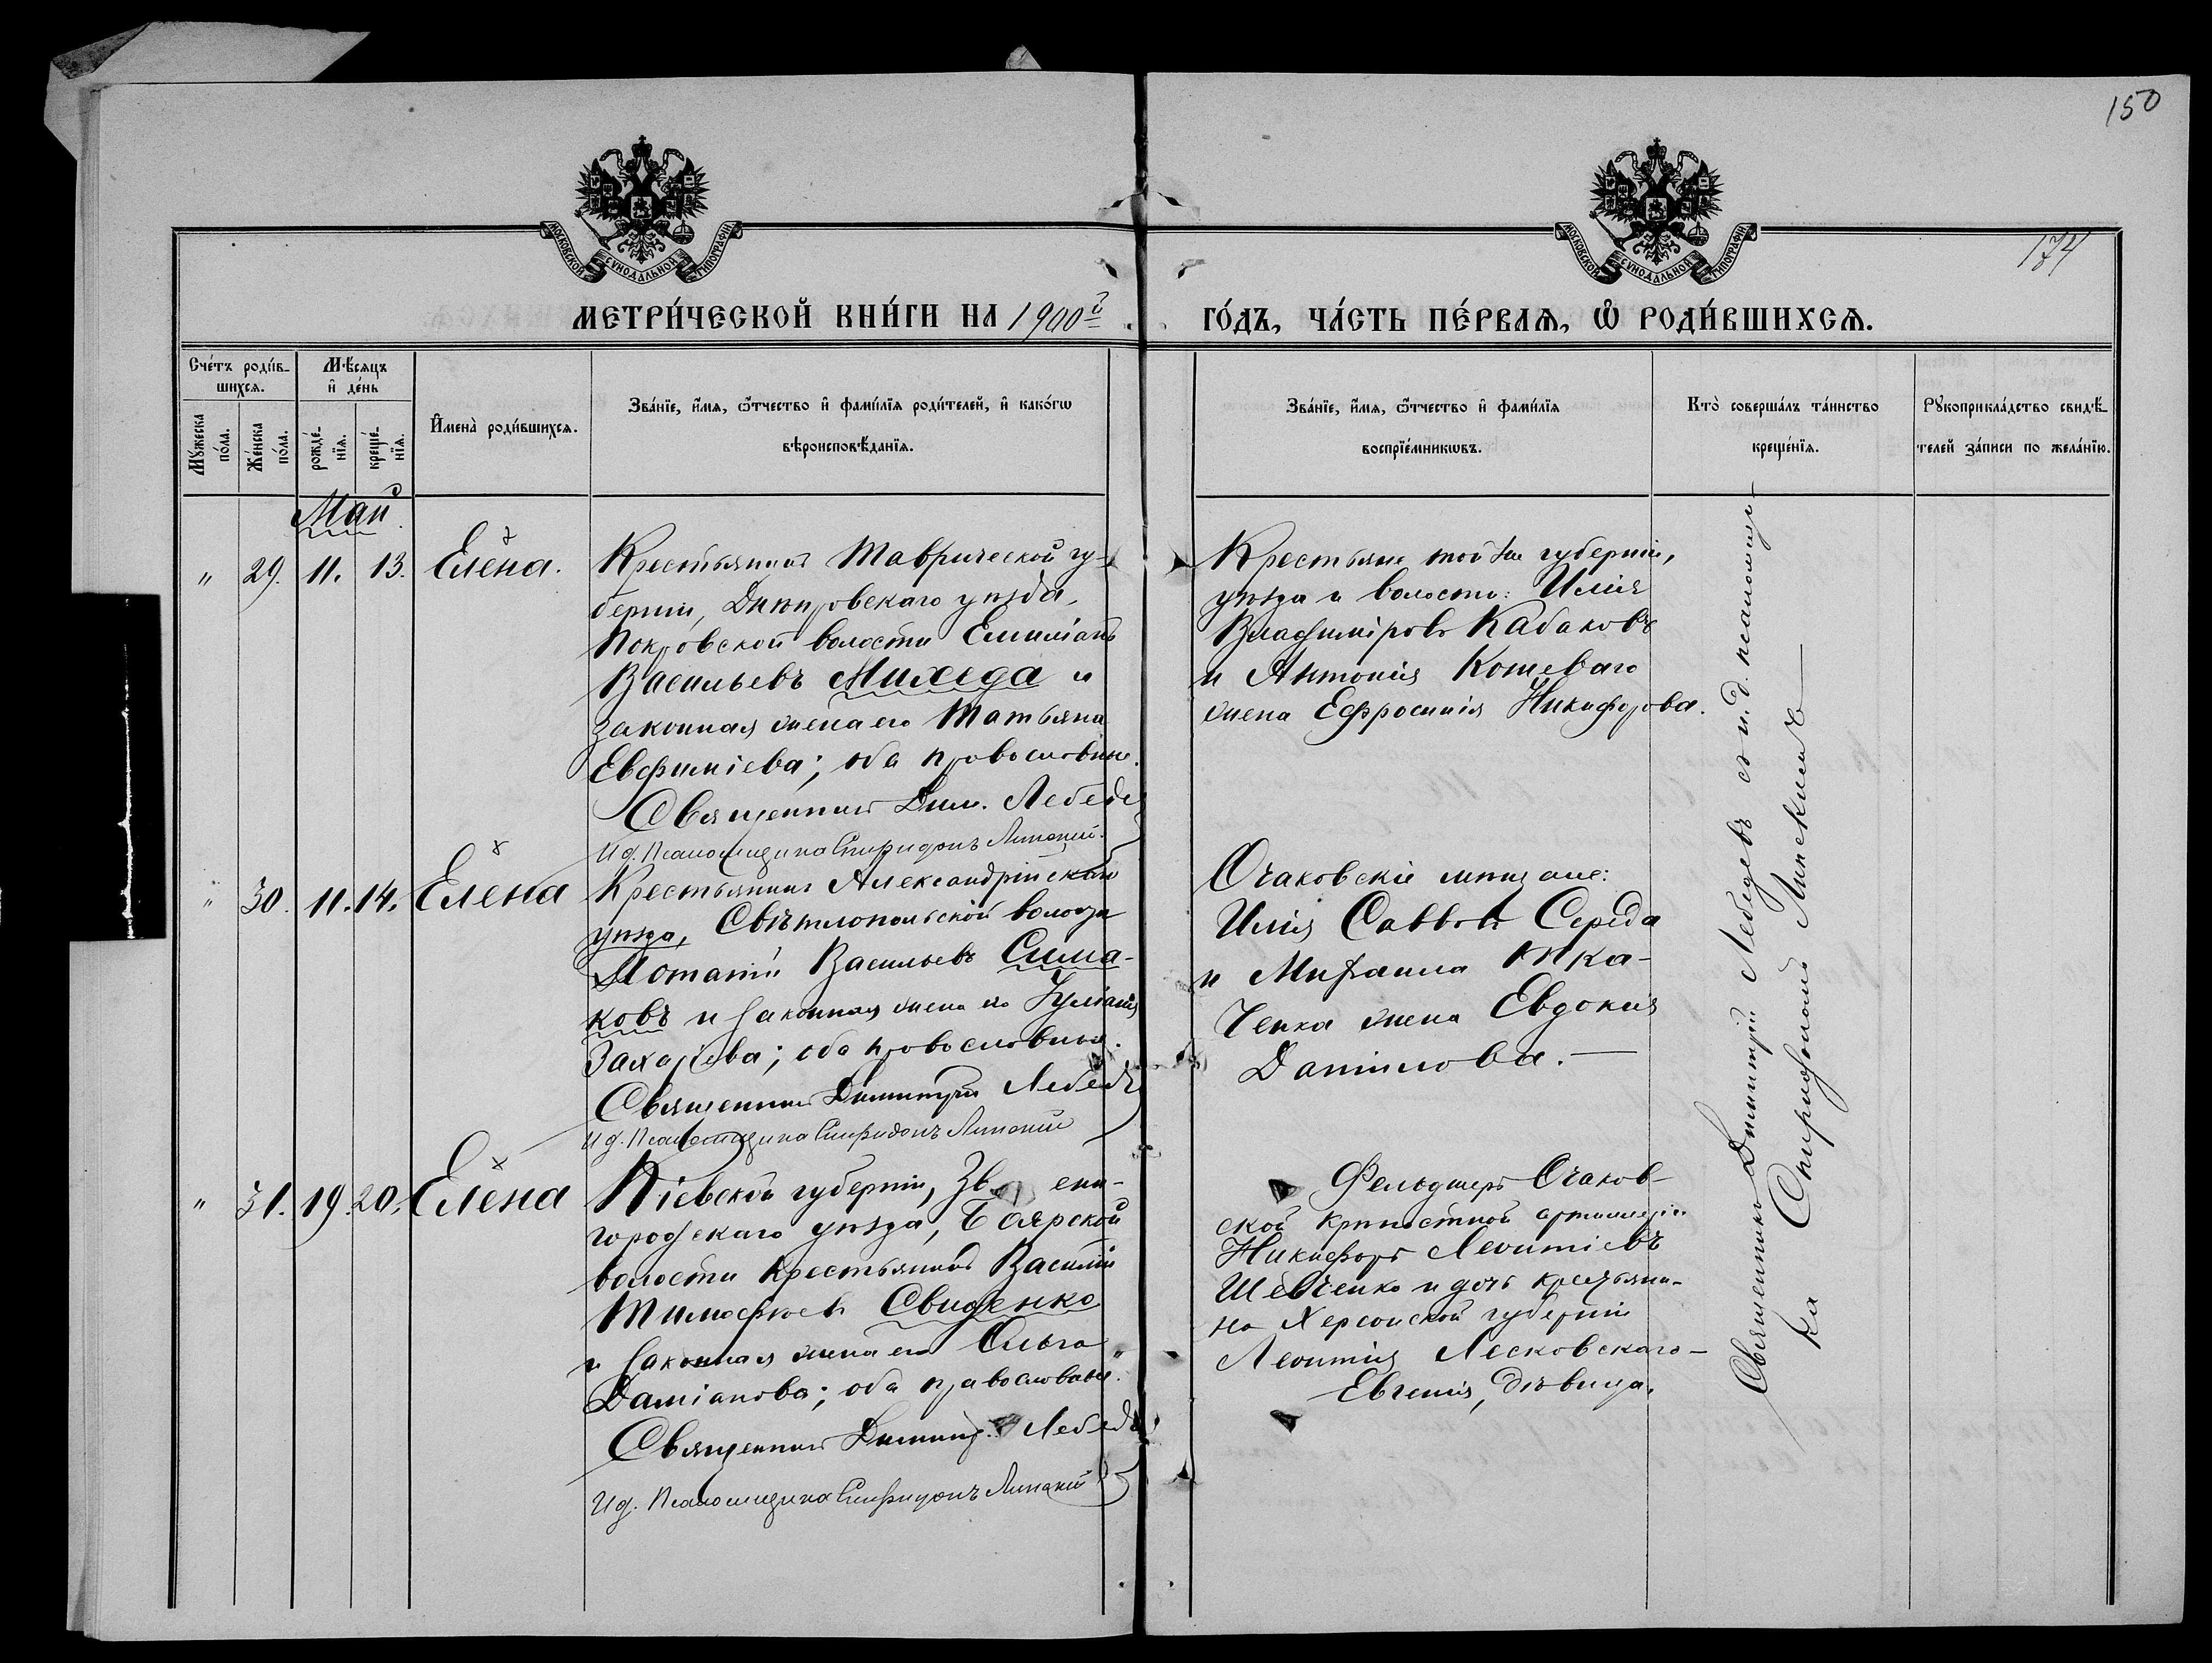 150
174
МОСКОВСКОЙ СѴНОДАЛЬНОЙ ТИПОГРАФІИ
МОСКОВСКОЙ СѴНОДАЛЬНОЙ ТИПОГРАФІИ
МЕТРИ́ЧЕСКОЙ КНИ́ГИ НА 1900й
ГО́ДЪ, ЧА́СТЬ ПЕ́РВАѦ, Ѿ РОДИ́ВШИХСѦ.
Сче́тъ роди́в-
шихсѧ.
Мꙋ́жеска по́ла.
Же́нска по́ла.
Мѣ́сяцъ
и̂ де́нь
рожде́-нїѧ.
креще́-нїѧ.
И̂мена̀ роди́вшихсѧ.
Зва́нїе, и́мѧ, ѻ҆́тчество и̂ фами́лїѧ роди́телей, и̂ како́гѡ
вѣроисповѣ́данїѧ.
Зва́нїе, и́мѧ, ѻ҆́тчество и̂ фами́лїѧ
воспрїе́мникѡвъ.
Кто̀ соверша́лъ та́инство
креще́нїѧ.
Рꙋкоприкла́дство свидѣ́-
телей за́писи по жела́нїю.
Май
" 29. 11. 13. Елена.
Крестьянинъ Таврической гу-
берніи, Днѣпровскаго уѣзда,
Покровской волости Емиліанъ
Васильевъ Михеда и
законная жена его Татьяна
Евфиміева; оба православные.
Священникъ Дим. Лебедевъ
И.д. Псаломщика Спиридонъ Липскій.
Крестьяне той же губерніи,
уѣзда и волости: Илія
Владиміровъ Кабаковъ
и Антонія Кошеваго
жена Ефросинія Никифорова.
" 30. 11. 14. Елена
Крестьянинъ Александрійскаго
уѣзда, Свѣтлопольской волости
Потапій Васильевъ Сима-
ковъ и законная жена его Іуліанія
Захаріева; оба православные.
Священникъ Димитрій Лебедевъ
И.д. Псаломщика Спиридонъ Липскій
Очаковскіе мѣщане:
Илія Саввовъ Середа
и Михаила Тка-
ченка жена Евдокия
Даніилова.
" 31. 19. 20. Елена
Кіевской губерніи, Зв ени-
городскаго уѣзда, Боярской
волости крестьянинъ Василій
Тимофѣевъ Свиденко
и законная жена его Ольга
Даміанова; оба православные.
Священникъ Димитр. Лебедевъ
И.д. Псаломщика Спиридонъ Липскій
Фельдшеръ Очаков-
ской крѣпостной артиллеріи
Никифоръ Леонтіевъ
Шевченко и дочь крестьяни-
на Херсонской губерніи
Леонтія Лесковскаго-
Евгенія, дѣвица.
Священникъ Димитрій Лебедевъ съ и.д. псаломщи-
ка Спиридономъ Липскимъ